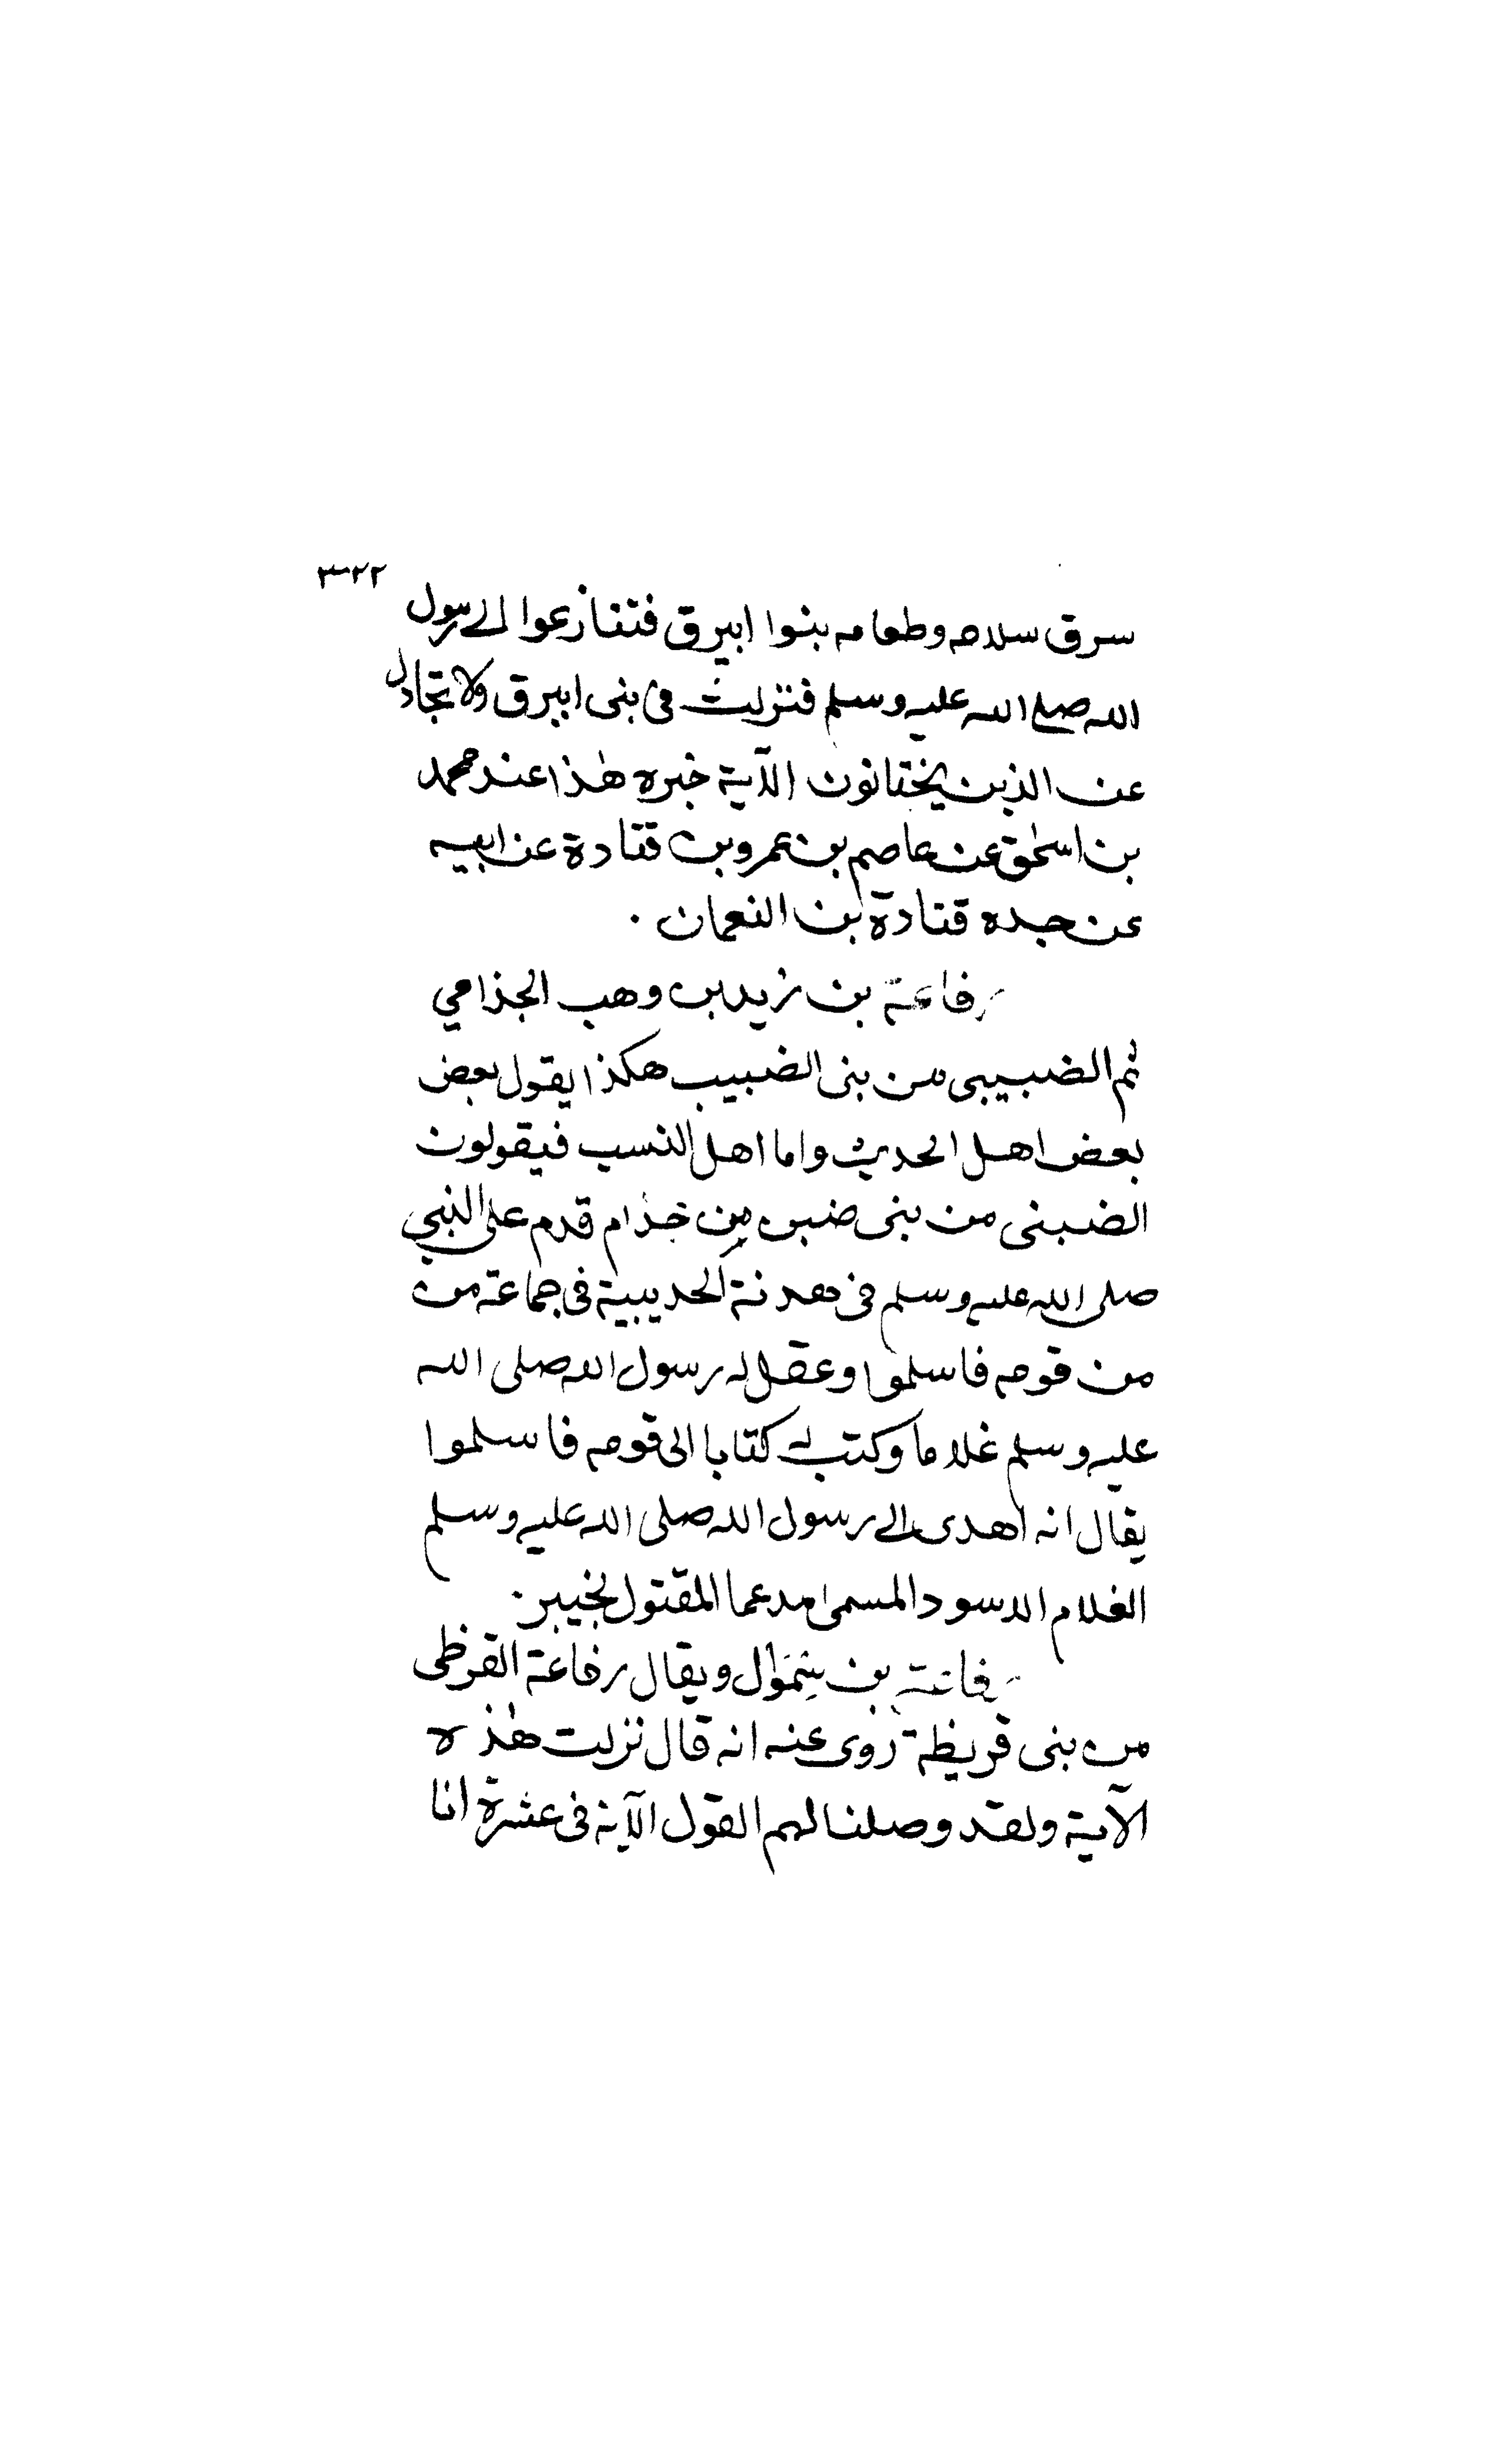 ٣٢٢
سرق سلاحه وطعامه بنوا ابيرق فتنازعوا الى رسول
الله صلى الله عليه وسلم فنزلت فى بنى ابيرق ولا تجادل
عن الذين يختانون الآية خبره هذا عند محمد
بن اسحق عن عاصم بن عمرو بن قتادة عن ابيه
عن جده قتادة بن النعمان .
رفاعة بن زيد بن وهب الجذامي
ثم الضبيبى من بنى الضبيب هكذا يقول بعض
بعض اهل الحديث واما اهل النسب فيقولون
الضبنى من بنى ضبن من جذام قدم على النبي
صلى الله عليه وسلم فى هدنة الحديبية فى جماعة من
من قومه فاسلموا وعقد له رسول الله صلى الله
عليه وسلم غلاما وكتب له كتابا الى قومه فاسلموا
يقال انه اهدى الى رسول الله صلى الله عليه وسلم
الغلام الاسود المسمى مدعما المقتول بخيبر .
رفاعة بن سموال ويقال رفاعة القرظى
من بنى قريظة روى عنه انه قال نزلت هذه
الآية ولقد وصلنا لهم القول الآية فى عشرة انا